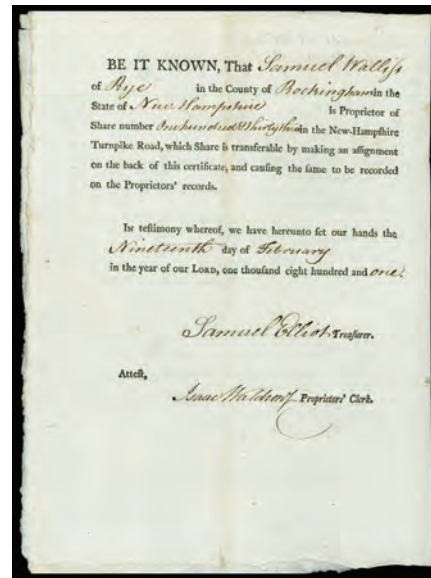 BE IT KNOWN, That Samuel Walliſs
of Rye in the County of Rockingham in the
State of New Hampshire is Proprietor of
Share number One hundred & thirty three in the New-Hampſhire
Turnpike Road, which Share is tranſferable by making an aſſignment
on the back of this certificate, and cauſing the ſame to be recorded
on the Proprietors' records.
In teſtimony whereof, we have hereunto ſet our hands the
Nineteenth day of February
in the year of our LORD, one thouſand eight hundred and one.
Samuel Elliot Treaſurer.
Atteſt,
Isaac Waldron Proprietors' Clerk.